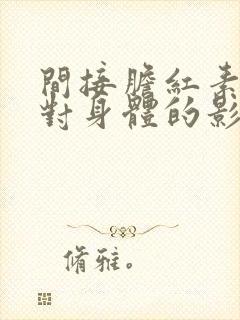 間接膽紅素
對身體的影
脩雅。